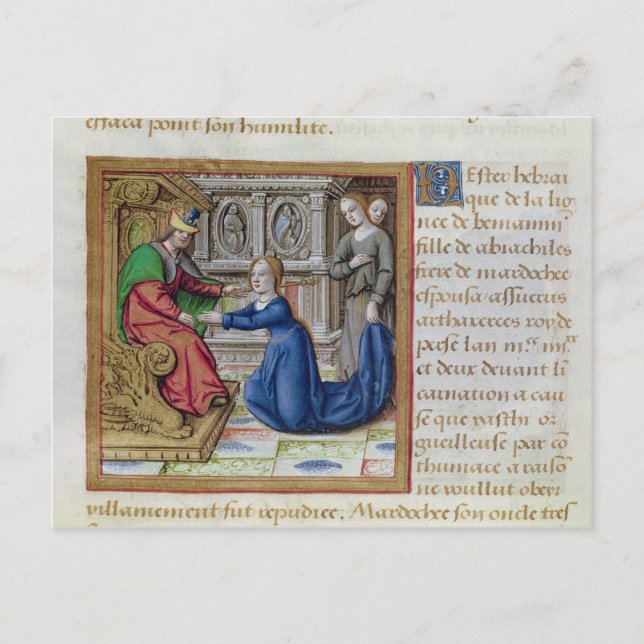 effaca point son humilite.
D Ester hebrai
que de la lig
nee de beniamin
fille de abiachiles
frere de mardochee
espousa assuerus
arthaxerces roy de
perse lan m.c iiii.xx
et deux devant li
carnation a cau
se que vasthi or
gueilleuse par cō
thumace a raisō
ne woullut obeyr
villamement fut repudiee. Mardochee son oncle tres